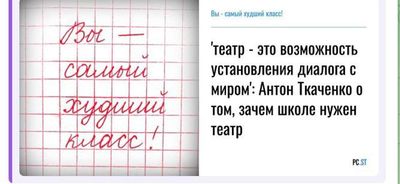 Вы —
самый
худший
класс!
Вы - самый худший класс!
'театр - это возможность
установления диалога с
миром': Антон Ткаченко о
том, зачем школе нужен
театр
PC.ST